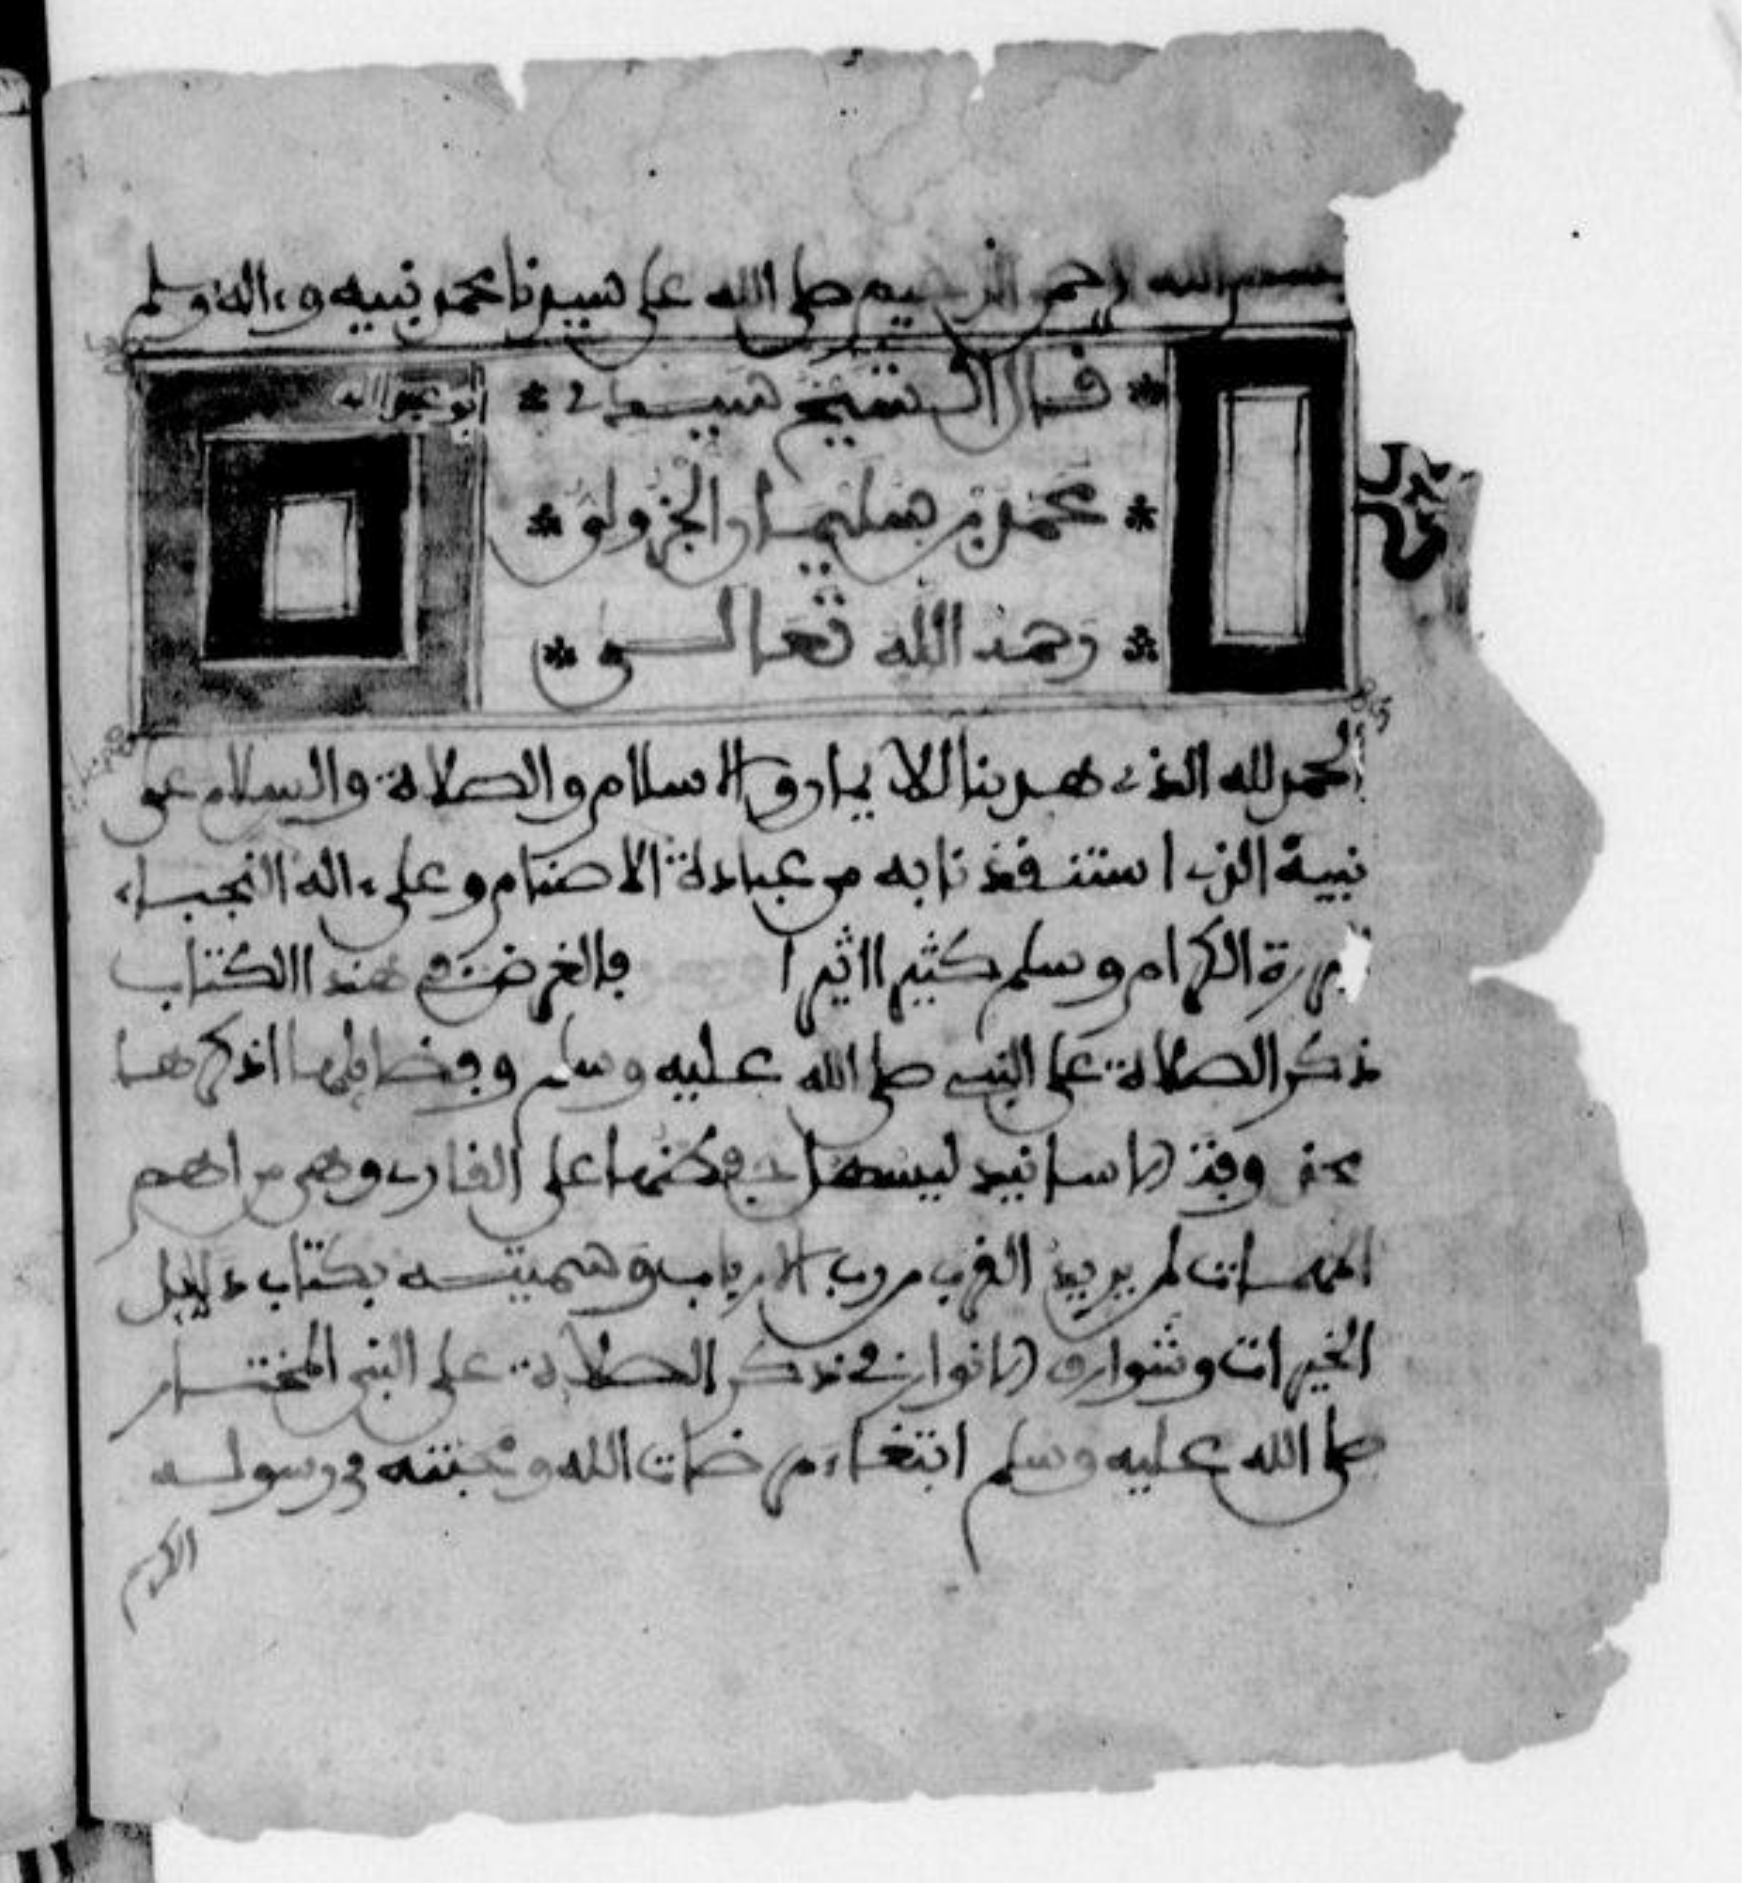 بسم الله الرحمن الرحيم صلى الله على سيدنا محمد نبيه وءاله وسلم
قال الشيخ سيدي أبو عبد الله
محمد بن سليمان الجزولي
رحمه الله تعالى
الحمد لله الذي هدينا للايمان والاسلام والصلاة والسلام على
نبيه الذي استنقذنا به من عبادة الاصنام وعلى ءاله النجباء
البررة الكرام وسلم كثيرا اثيرا فالغرض في هذا الكتاب
ذكر الصلاة على النبي صلى الله عليه وسلم وفضايلها اذكرها
محذوفة الاسانيد ليسهل حفظها على القارى وهي من اهم
المهمات لمن يريد القرب من رب الارباب وسميته بكتاب دلايل
الخيرات وشوارق الانوار في ذكر الصلاة على النبي المختار
صلى الله عليه وسلم ابتغاء مرضات الله ومحبته في رسوله
الكريم